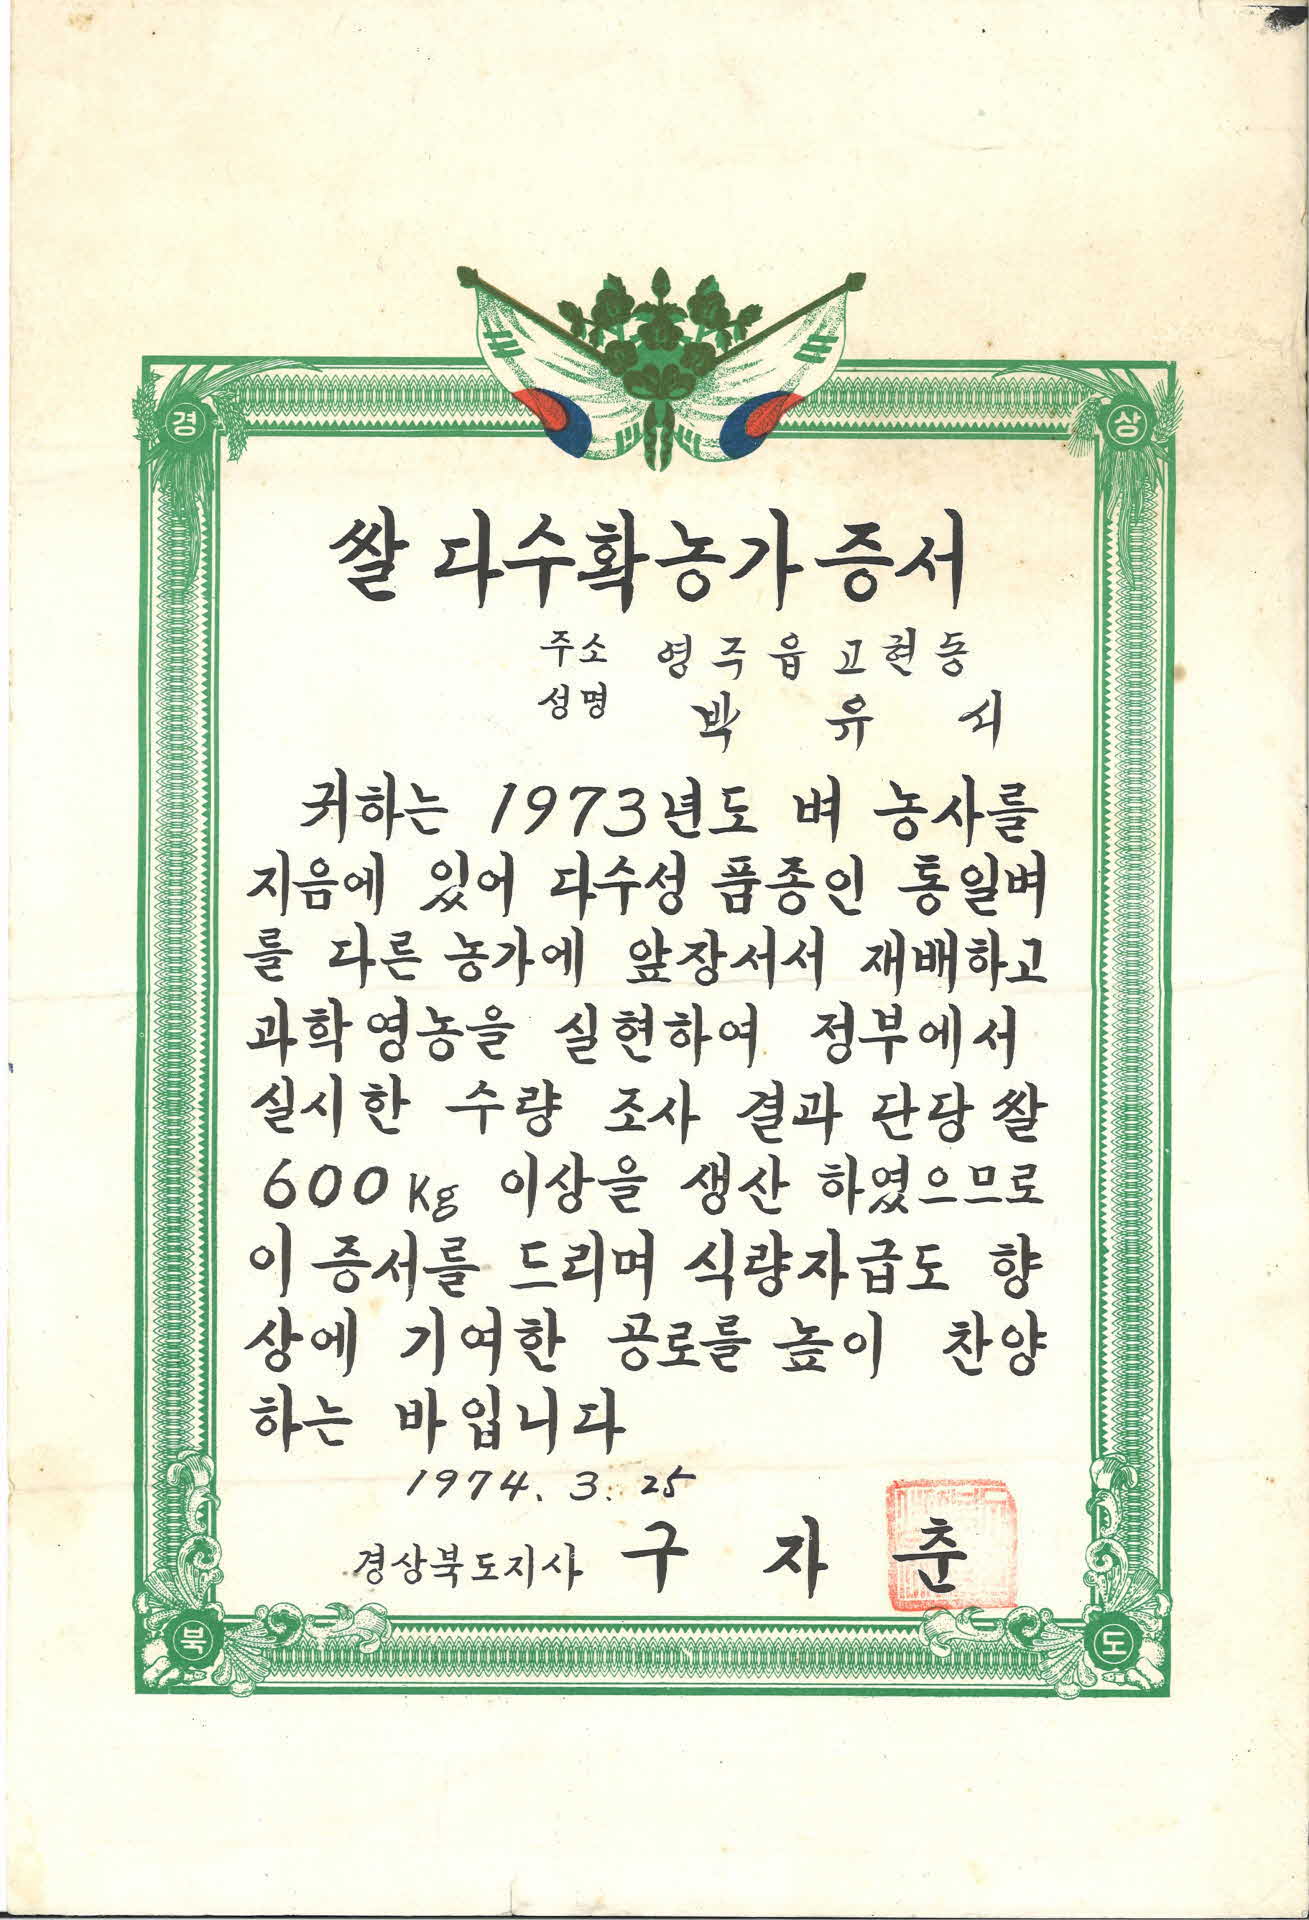 경 상
쌀 다수확농가증서
주소 영주읍고현동
성명 박 유 서
귀하는 1973년도 벼 농사를
지음에 있어 다수성 품종인 통일벼
를 다른 농가에 앞장서서 재배하고
과학영농을 실현하여 정부에서
실시한 수량 조사 결과 단당 쌀
600Kg 이상을 생산 하였으므로
이 증서를 드리며 식량자급도 향
상에 기여한 공로를 높이 찬양
하는 바입니다
1974. 3. 25
경상북도지사 구 자 춘
북 도